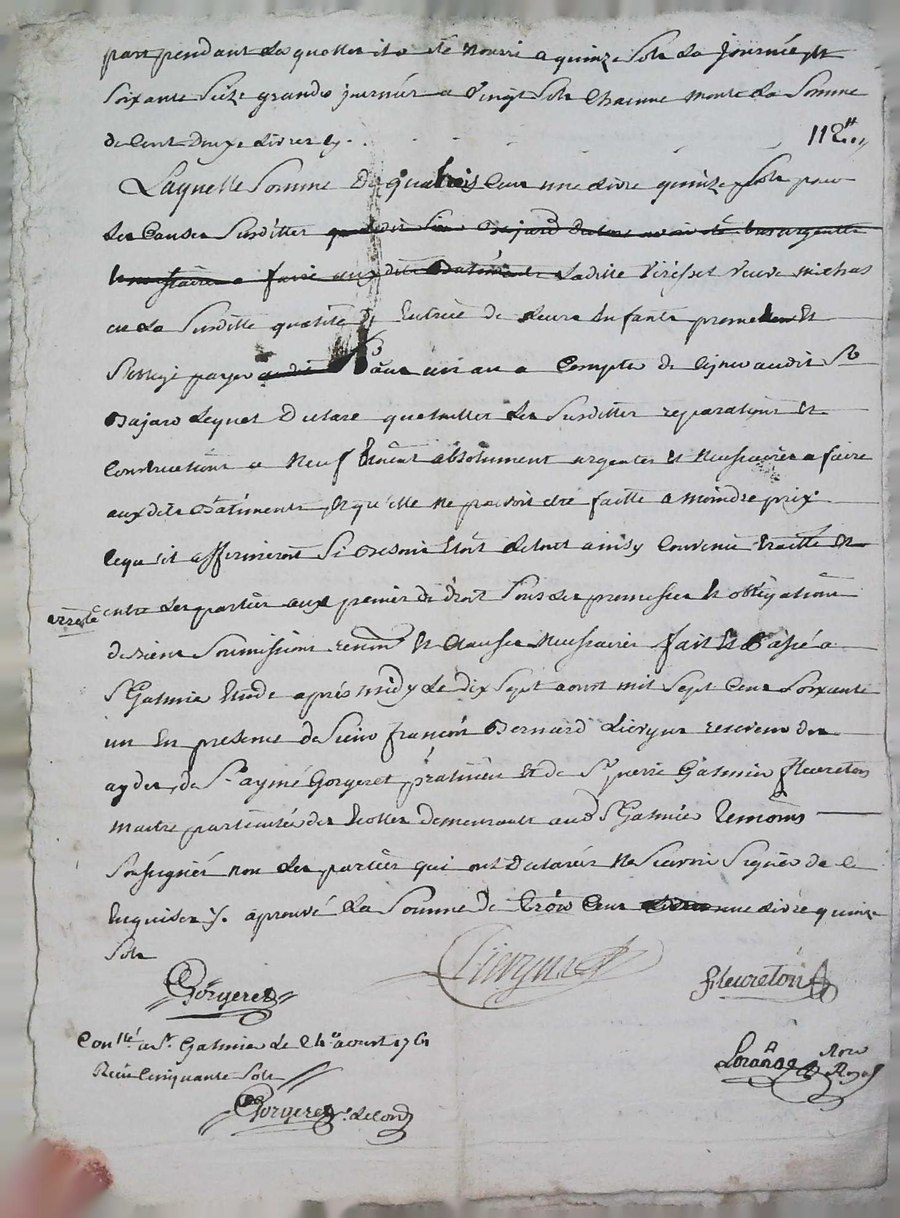 part pendant laquelle il a été nourri a quinze sols la journée et
soixante seize grande journée a vingt sols chacune monte la somme
de cent douze livres cy . 112 ₶
Laquelle somme de trois cens une livre quinze sols pour
les causes susdittes
nessaire a faire auxdits Batiments ladite veuve michas
en la susditte qualité de tutrice de leurs enfants promet et
s'obligé payer dans un an a compter de ce jour audit Sr
Bajard lequel declare que toutes les susdittes reparations et
constructions a neuf etoient absolument urgentes et necessaires a faire
auxdits Batiments, et qu'elle ne pouvoit etre faitte a moindre prix
ce qu'il affirmeroit si besoin etoit le tout ainsy convenu traitté et
arresté
entre les parties aux peines de droit sous les promesses et obligations
de biens soumissions renonc. et clauses necessaires fait et passé a
St Galmier etude après midy le dix sept aoust mil sept cens soixante
un en presence de sieur françois Bernard Lievyns receveur des
aydes, de Sr aymé Gorgeret praticien et de Sr pierre Galmier fleureton
maitre particulier des Ecolles demeurants aud St Galmier temoins
soussignés non les parties qui ont declarés ne scavoir signer de ce
enquises ·/. aprouvé la somme de trois cens une livre quinze
sols
Gorgeret Fleureton
Con.llé a St Galmier le 24 aoust 1761
Reçu cinquante sols
Noro Royal
Gorgeret